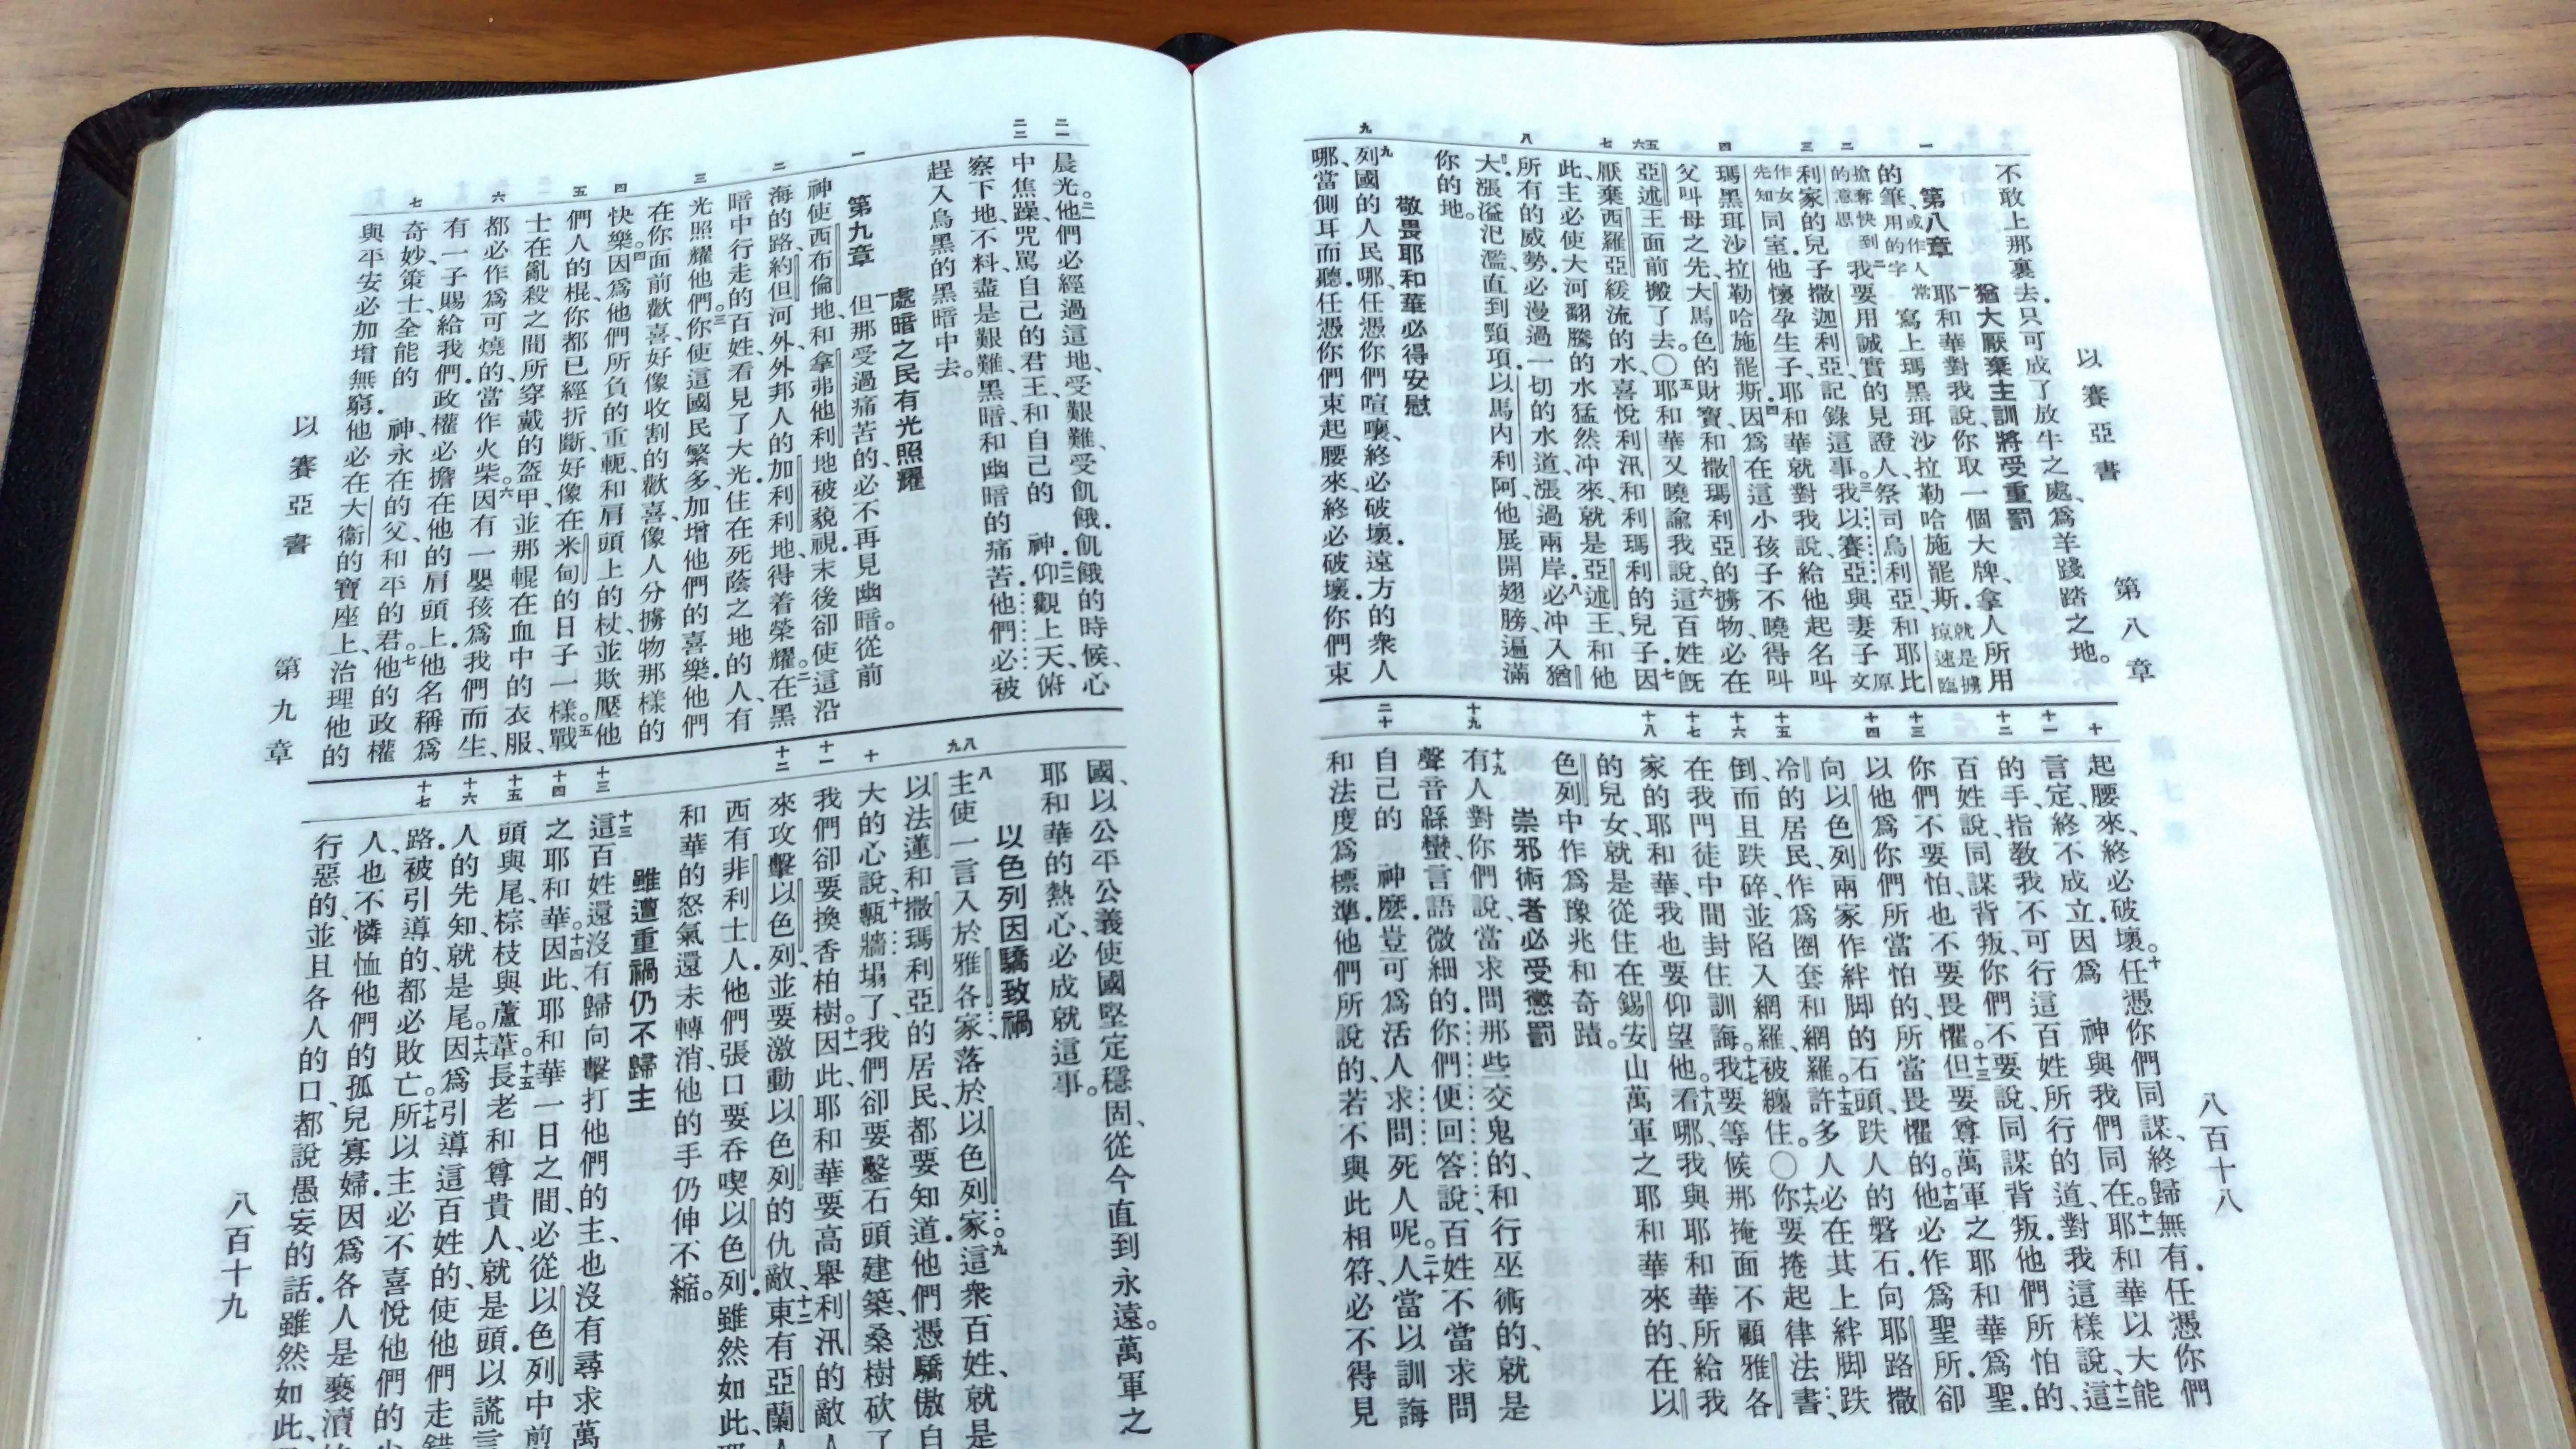 以賽亞書 第八章 八百十八
一 二 三 四 五 六 七 八 九
不敢上那裏去．只可成了放牛之處、爲羊踐踏之地。
猶大厭棄主訓將受重罰
第八章 一耶和華對我說、你取一個大牌、拿人所用
的筆、或作人常用的字寫上瑪黑珥沙拉勒哈施罷斯．就是擄掠速臨
搶奪快到的意思二我要用誠實的見證人、祭司烏利亞、和耶比
利家的兒子撒迦利亞、記錄這事。三我以賽亞與妻子原文
作女先知同室．他懷孕生子、耶和華就對我說、給他起名叫
瑪黑珥沙拉勒哈施罷斯．四因爲在這小孩子不曉得叫
父叫母之先、大馬色的財寶、和撒瑪利亞的擄物、必在
亞述王面前搬了去。〇五耶和華又曉諭我說、六這百姓旣
厭棄西羅亞緩流的水、喜悅利汛和利瑪利的兒子．七因
此、主必使大河翻騰的水猛然冲來、就是亞述王、和他
所有的威勢．必漫過一切的水道、漲過兩岸．八必冲入猶
大．漲溢氾濫、直到頸項．以馬內利阿、他展開翅膀、遍滿
你的地。
敬畏耶和華必得安慰
九列國的人民哪、任憑你們喧嚷、終必破壞．遠方的衆人
哪、當側耳而聽．任憑你們束起腰來、終必破壞．你們束
十 十一 十二 十三 十四 十五 十六 十七 十八 十九 二十
起腰來、終必破壞。十任憑你們同謀、終歸無有．任憑你們
言定、終不成立．因爲 神與我們同在。十一耶和華以大能
的手、指教我不可行這百姓所行的道、對我這樣說、十二這
百姓說、同謀背叛、你們不要說、同謀背叛．他們所怕的、
你們不要怕、也不要畏懼。十三但要尊萬軍之耶和華爲聖．
以他爲你們所當怕的、所當畏懼的。十四他必作爲聖所．卻
向以色列兩家作絆脚的石頭、跌人的磐石．向耶路撒
冷的居民、作爲圈套和網羅。十五許多人必在其上絆脚跌
倒、而且跌碎、並陷入網羅、被纏住。〇十六你要捲起律法書、
在我門徒中間封住訓誨。十七我要等候那掩面不顧雅各
家的耶和華、我也要仰望他。十八看哪、我與耶和華所給我
的兒女、就是從住在錫安山萬軍之耶和華來的、在以
色列中作爲豫兆和奇蹟。
崇邪術者必受懲罰
十九有人對你們說、當求問那些交鬼的、和行巫術的、就是
聲音緜蠻、言語微細的．你們便回答說、百姓不當求問
自己的 神麼．豈可爲活人求問死人呢。二十人當以訓誨
和法度爲標準．他們所說的、若不與此相符、必不得見
以賽亞書 第九章 八百十九
二一 二二 一 二 三 四 五 六 七
晨光。二一他們必經過這地、受艱難、受飢餓．飢餓的時候、心
中焦躁、咒罵自己的君王、和自己的 神．二二仰觀上天、俯
察下地、不料、盡是艱難、黑暗、和幽暗的痛苦．他們必被
趕入烏黑的黑暗中去。
處暗之民有光照耀
第九章 一但那受過痛苦的、必不再見幽暗。從前
神使西布倫地、和拿弗他利地被藐視．末後卻使這沿
海的路、約但河外、外邦人的加利利地、得着榮耀。二在黑
暗中行走的百姓、看見了大光．住在死蔭之地的人、有
光照耀他們。三你使這國民繁多、加增他們的喜樂．他們
在你面前歡喜、好像收割的歡喜、像人分擄物那樣的
快樂。四因爲他們所負的重軛、和肩頭上的杖、並欺壓他
們人的棍、你都已經折斷、好像在米甸的日子一樣。五戰
士在亂殺之間所穿戴的盔甲、並那輥在血中的衣服、
都必作爲可燒的、當作火柴。六因有一嬰孩爲我們而生、
有一子賜給我們．政權必擔在他的肩頭上．他名稱爲
奇妙、策士、全能的 神、永在的父、和平的君。七他的政權
與平安必加增無窮．他必在大衞的寶座上、治理他的
八 九 十 十一 十二 十三 十四 十五 十六 十七
國、以公平公義使國堅定穩固、從今直到永遠。萬軍之
耶和華的熱心、必成就這事。
以色列因驕致禍
八主使一言入於雅各家、落於以色列家。九這衆百姓、就是
以法蓮和撒瑪利亞的居民、都要知道．他們憑驕傲自
大的心說、十甎牆塌了、我們卻要鑿石頭建築、桑樹砍了
我們卻要換香柏樹。十一因此、耶和華要高舉利汛的敵
來攻擊以色列、並要激動以色列的仇敵．十二東有亞蘭
西有非利士人．他們張口要吞喫以色列．雖然如此、
和華的怒氣還未轉消、他的手仍伸不縮。
雖遭重禍仍不歸主
十三這百姓還沒有歸向擊打他們的主、也沒有尋求萬
之耶和華。十四因此、耶和華一日之間、必從以色列中
頭與尾、棕枝與蘆葦。十五長老和尊貴人、就是頭．以謊言
人的先知、就是尾。十六因爲引導這百姓的、使他們走錯
路．被引導的、都必敗亡。十七所以主必不喜悅他們的
人、也不憐恤他們的孤兒寡婦．因爲各人是褻瀆
行惡的、並且各人的口、都說愚妄的話．雖然如此、